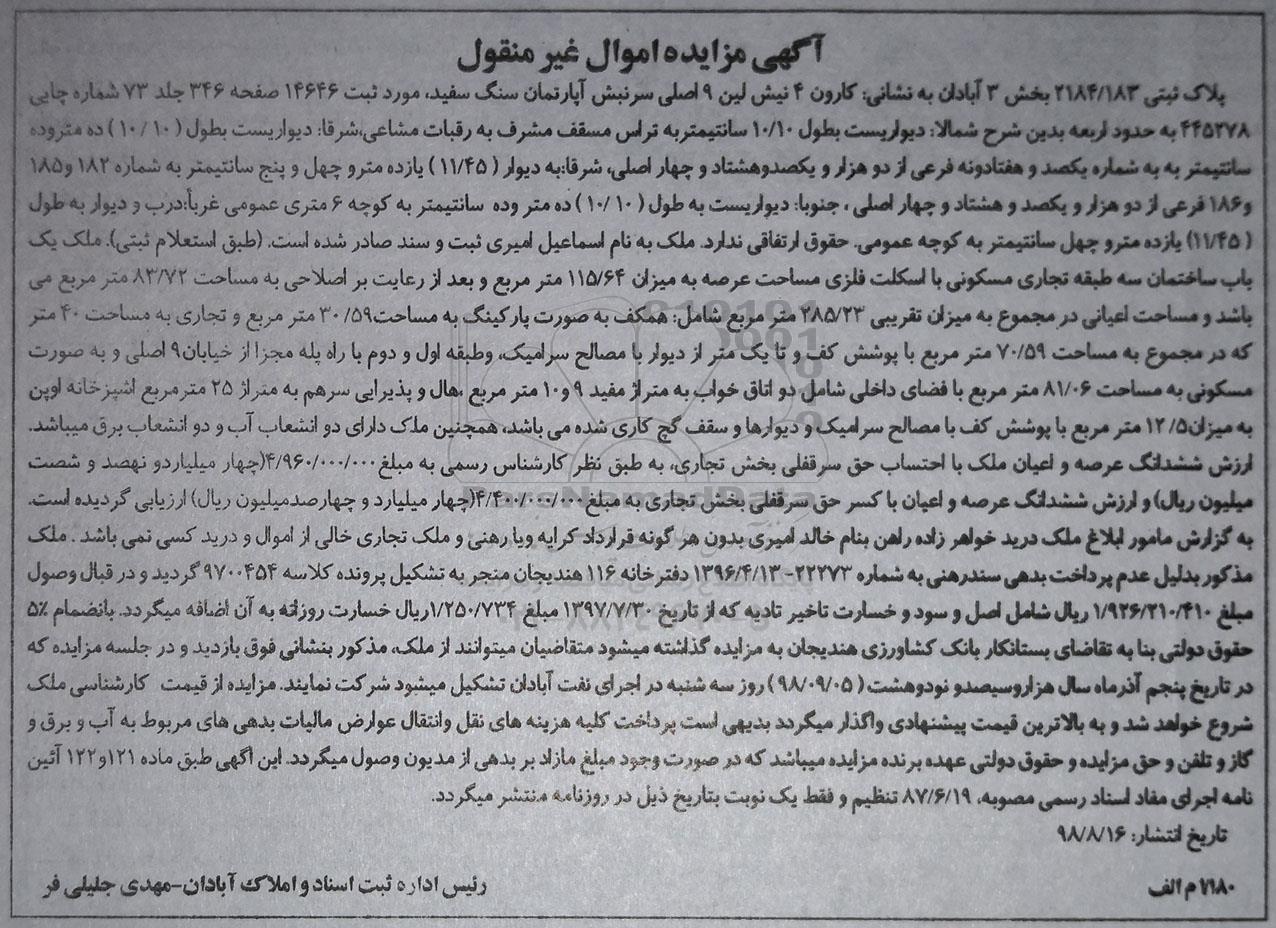 آگهی مزایده اموال غیر منقول
پلاک ثبتی ۲۱۸۴/۱۸۳ بخش ۳ آبادان به نشانی: کارون ۴ نیش لین ۹ اصلی سرنبش آپارتمان سنگ سفید، مورد ثبت ۱۴۶۴۶ صفحه ۳۴۶ جلد ۷۳ شماره چاپی
۴۴۵۲۷۸ به حدود اربعه بدین شرح شمالا: دیواریست بطول ۱۰/۱۰ سانتیمتربه تراس مسقف مشرف به رقبات مشاعی،شرقا: دیواریست بطول ( ۱۰/۱۰ ) ده متروده
سانتیمتر به به شماره یکصد و هفتادونه فرعی از دو هزار و یکصدوهشتاد و چهار اصلی، شرقا:به دیوار ( ۱۱/۴۵ ) یازده مترو چهل و پنج سانتیمتر به شماره ۱۸۲ و۱۸۵
و۱۸۶ فرعی از دو هزار و یکصد و هشتاد و چهار اصلی ، جنوبا: دیواریست به طول ( ۱۰/۱۰ ) ده متر وده سانتیمتر به کوچه ۶ متری عمومی غرباً:درب و دیوار به طول
( ۱۱/۴۵) یازده مترو چهل سانتیمتر به کوچه عمومی. حقوق ارتفاقی ندارد. ملک به نام اسماعیل امیری ثبت و سند صادر شده است. (طبق استعلام ثبتی). ملک یک
باب ساختمان سه طبقه تجاری مسکونی با اسکلت فلزی مساحت عرصه به میزان ۱۱۵/۶۴ متر مربع و بعد از رعایت بر اصلاحی به مساحت ۸۳/۷۲ متر مربع می
باشد و مساحت اعیانی در مجموع به میزان تقریبی ۲۸۵/۲۳ متر مربع شامل: همکف به صورت پارکینگ به مساحت۳۰/۵۹ متر مربع و تجاری به مساحت ۴۰ متر
که در مجموع به مساحت ۷۰/۵۹ متر مربع با پوشش کف و تا یک متر از دیوار با مصالح سرامیک، وطبقه اول و دوم با راه پله مجزا از خیابان۹ اصلی و به صورت
مسکونی به مساحت ۸۱/۰۶ متر مربع با فضای داخلی شامل دو اتاق خواب به متراژ مفید ۹ و۱۰ متر مربع ،هال و پذیرایی سرهم به متراژ ۲۵ مترمربع اشپزخانه اوپن
به میزان۱۲/۵ متر مربع با پوشش کف با مصالح سرامیک و دیوارها و سقف گچ کاری شده می باشد، همچنین ملک دارای دو انشعاب آب و دو انشعاب برق میباشد.
ارزش ششدانگ عرصه و اعیان ملک با احتساب حق سرقفلی بخش تجاری، به طبق نظر کارشناس رسمی به مبلغ ۴/۹۶۰/۰۰۰/۰۰۰(چهار میلیاردو نهصد و شصت
میلیون ریال) و ارزش ششدانگ عرصه و اعیان با کسر حق سرقفلی بخش تجاری به مبلغ ۴/۴۰۰/۰۰۰/۰۰۰(چهار میلیارد و چهارصدمیلیون ریال) ارزیابی گردیده است.
به گزارش مامور ابلاغ ملک درید خواهر زاده راهن بنام خالد امیری بدون هر گونه قرارداد کرایه ویا رهنی و ملک تجاری خالی از اموال و درید کسی نمی باشد . ملک
مذکور بدلیل عدم پرداخت بدهی سندرهنی به شماره ۲۲۲۷۳- ۱۳۹۶/۴/۱۳ دفترخانه ۱۱۶ هندیجان منجر به تشکیل پرونده کلاسه ۹۷۰۰۴۵۴ گردید و در قبال وصول
مبلغ ۱/۹۲۶/۲۱۰/۴۱۰ ریال شامل اصل و سود و خسارت تاخیر تادیه که از تاریخ ۱۳۹۷/۷/۳۰ مبلغ ۱/۲۵۰/۷۳۴ریال خسارت روزانه به آن اضافه میگردد. بانضمام ۵٪
حقوق دولتی بنا به تقاضای بستانکار بانک کشاورزی هندیجان به مزایده گذاشته میشود متقاضیان میتوانند از ملک، مذکور بنشانی فوق بازدید و در جلسه مزایده که
در تاریخ پنجم آذرماه سال هزاروسیصدو نودوهشت ( ۹۸/۰۹/۰۵ ) روز سه شنبه در اجرای نفت آبادان تشکیل میشود شرکت نمایند. مزایده از قیمت کارشناسی ملک
شروع خواهد شد و به بالاترین قیمت پیشنهادی واگذار میگردد بدیهی است پرداخت کلیه هزینه های نقل وانتقال عوارض مالیات بدهی های مربوط به آب و برق و
گاز و تلفن و حق مزایده و حقوق دولتی عهده برنده مزایده میباشد که در صورت وجود مبلغ مازاد بر بدهی از مدیون وصول میگردد. این آگهی طبق ماده ۱۲۱و۱۲۲ آئین
نامه اجرای مفاد اسناد رسمی مصوبه، ۸۷/۶/۱۹ تنظیم و فقط یک نوبت بتاریخ ذیل در روزنامه منتشر میگردد.
تاریخ انتشار: ۹۸/۸/۱۶
رئیس اداره ثبت اسناد و املاک آبادان-مهدی جلیلی فر
۷۱۸۰ م الف